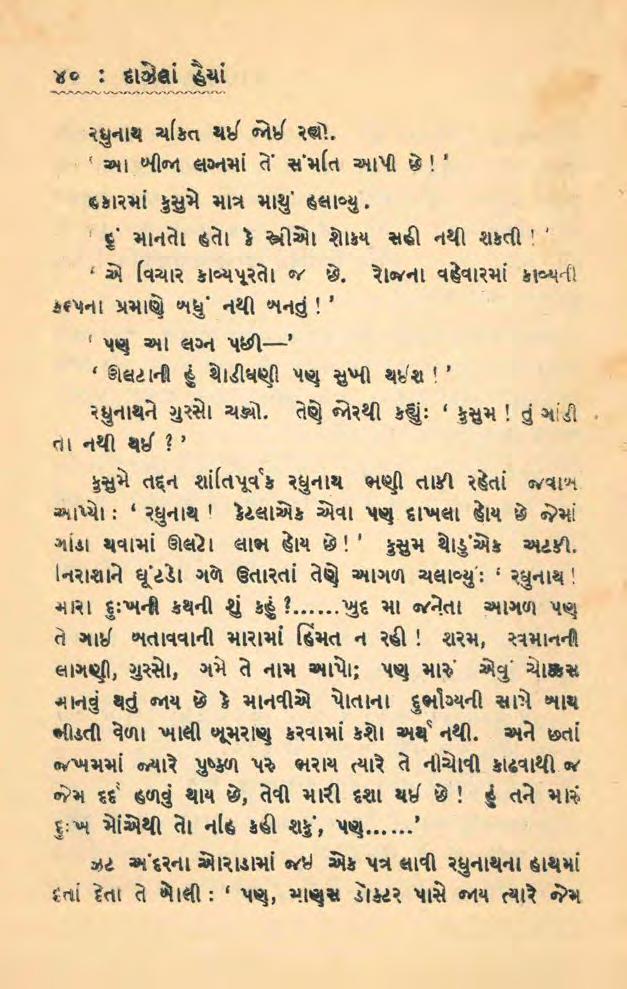 ૪૦ : દાઝેલાં હૈયાં
રઘુનાથ ચકિત થઈ જોઈ રહ્યો.
‘ આ બીજા લગ્નમાં તેં સંમતિ આપી છે ! ’
હકારમાં કુસુમે માત્ર માથું હલાવ્યુ.
‘ હું માનતો હતો કે સ્ત્રીઓ શોકય સહી નથી શકતી ! ’
‘ એ વિચાર કાવ્યપૂરતો જ છે. રોજના વહેવારમાં કાવ્યની
કલ્પના પ્રમાણે બધું નથી બનતું ! ’
‘ પણ આ લગ્ન પછી—’
‘ ઊલટાની હું થોડીઘણી પણ સુખી થઈશ ! ’
રઘુનાથને ગુસ્સો ચડ્યો. તેણે જોરથી કહ્યુંઃ ‘ કુસુમ ! તું ગાંડી
તો નથી થઈ ? ’
કુસુમે તદ્દન શાંતિપૂર્વક રઘુનાથ ભણી તાકી રહેતાં જવાબ
આપ્યો : ‘ રઘુનાથ ! કેટલાએક એવા પણ દાખલા હોય છે જેમાં
ગાંડા થવામાં ઊલટો લાભ હોય છે ! ’ કુસુમ થોડુંએક અટકી.
નિરાશાને ઘૂંટડો ગળે ઉતારતાં તેણે આગળ ચલાવ્યુંઃ ‘ રઘુનાથ !
મારા દુઃખની કથની શું કહું ?......ખુદ મા જનેતા આગળ પણ
તે ગાઈ બતાવવાની મારામાં હિંમત ન રહી ! શરમ, સ્વમાનની
લાગણી, ગુસ્સો, ગમે તે નામ આપો; પણ મારું એવું ચોક્કસ
માનવું થતું જાય છે કે માનવીએ પોતાના દુર્ભાગ્યની સામે બાથ
ભીડતી વેળા ખાલી બૂમરાણ કરવામાં કશો અર્થ નથી. અને છતાં
જખમમાં જ્યારે પુષ્કળ પરુ ભરાય ત્યારે તે નીચોવી કાઢવાથી જ
જેમ દર્દ હળવું થાય છે, તેવી મારી દશા થઈ છે ! હું તને મારું
દુઃખ મોંએથી તો નહિ કહી શકું, પણ......’
ઝટ અંદરના ઓરાડામાં જઈ એક પત્ર લાવી રઘુનાથના હાથમાં
દેતાં દેતા તે બોલી : ‘ પણ, માણસ ડોક્ટર પાસે જાય ત્યારે જેમ